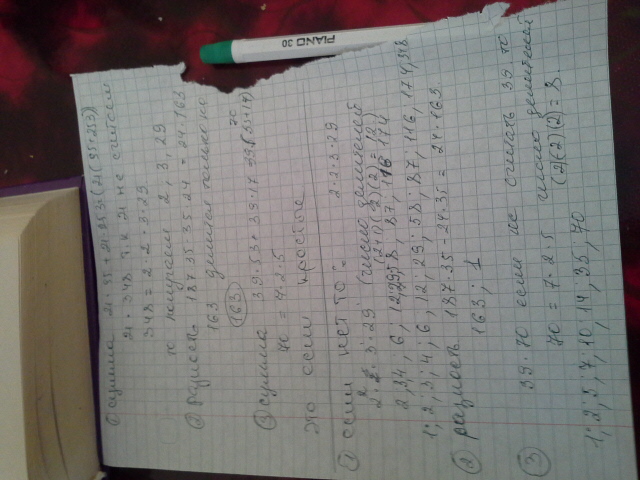 PIANO 30
① сумма 21·95 + 21·253 = (21(95+253))
21·348 т.к 21 не считаем
348 = 2·2·3·29
то получаем 2, 3, 29
② разность 187·35 - 35·24 = 24·163
163 делится только на
(163)
③ сумма 39·53 + 39·17 = 39(53+17)
70
70 = 7·2·5
это если простые
① если нет то: 2·2·3·29
2²·3·29 (число делителей
(2+1)(2)(2) = 12)
2, 3, 4; 6; 12, 29, 58, 87, 116, 174
1; 2; 3; 4; 6; 12; 29; 58; 87; 116, 174, 348
② разность 187·35 - 24·35 = 24·163
163; 1
③ 39·70 если не считать 39, то
70 = 7·2·5 число делителей
(2)(2)(2) = 8
1; 2, 5, 7; 10; 14; 35, 70